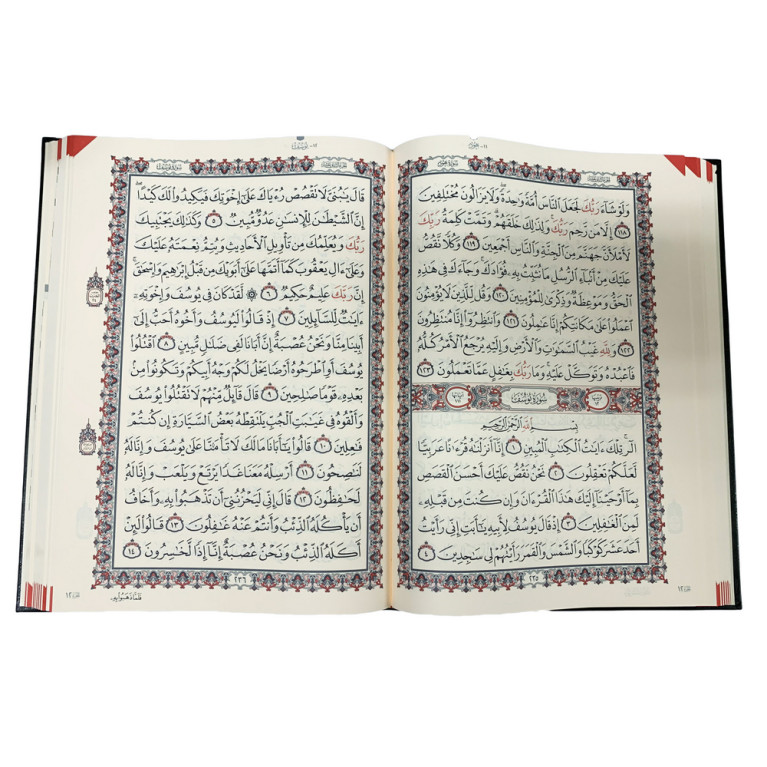 ١١- هود
سورة هود
وَلَوْ شَآءَ رَبُّكَ لَجَعَلَ ٱلنَّاسَ أُمَّةً وَٰحِدَةً وَلَا يَزَالُونَ مُخْتَلِفِينَ
١١٨ إِلَّا مَن رَّحِمَ رَبُّكَ وَلِذَٰلِكَ خَلَقَهُمْ وَتَمَّتْ كَلِمَةُ رَبِّكَ
لَأَمْلَأَنَّ جَهَنَّمَ مِنَ ٱلْجِنَّةِ وَٱلنَّاسِ أَجْمَعِينَ ١١٩ وَكُلًّا نَّقُصُّ
عَلَيْكَ مِنْ أَنۢبَآءِ ٱلرُّسُلِ مَا نُثَبِّتُ بِهِۦ فُؤَادَكَ وَجَآءَكَ فِي هَٰذِهِ
ٱلْحَقُّ وَمَوْعِظَةٌ وَذِكْرَىٰ لِلْمُؤْمِنِينَ ١٢٠ وَقُل لِّلَّذِينَ لَا يُؤْمِنُونَ
ٱعْمَلُوا۟ عَلَىٰ مَكَانَتِكُمْ إِنَّا عَٰمِلُونَ ١٢١ وَٱنتَظِرُوٓا۟ إِنَّا مُنتَظِرُونَ
١٢٢ وَلِلَّهِ غَيْبُ ٱلسَّمَٰوَٰتِ وَٱلْأَرْضِ وَإِلَيْهِ يُرْجَعُ ٱلْأَمْرُ كُلُّهُۥ
فَٱعْبُدْهُ وَتَوَكَّلْ عَلَيْهِ وَمَا رَبُّكَ بِغَٰفِلٍ عَمَّا تَعْمَلُونَ ١٢٣
سُورَةُ يُوسُفَ
بِسْمِ ٱللَّهِ ٱلرَّحْمَٰنِ ٱلرَّحِيمِ
الٓر تِلْكَ ءَايَٰتُ ٱلْكِتَٰبِ ٱلْمُبِينِ ١ إِنَّآ أَنزَلْنَٰهُ قُرْءَٰنًا عَرَبِيًّا
لَّعَلَّكُمْ تَعْقِلُونَ ٢ نَحْنُ نَقُصُّ عَلَيْكَ أَحْسَنَ ٱلْقَصَصِ
بِمَآ أَوْحَيْنَآ إِلَيْكَ هَٰذَا ٱلْقُرْءَانَ وَإِن كُنتَ مِن قَبْلِهِۦ
لَمِنَ ٱلْغَٰفِلِينَ ٣ إِذْ قَالَ يُوسُفُ لِأَبِيهِ يَٰٓأَبَتِ إِنِّي رَأَيْتُ
أَحَدَ عَشَرَ كَوْكَبًا وَٱلشَّمْسَ وَٱلْقَمَرَ رَأَيْتُهُمْ لِي سَٰجِدِينَ ٤
٢٣٥
١٢
١٢- يوسف
سورة يوسف
قَالَ يَٰبُنَيَّ لَا تَقْصُصْ رُءْيَاكَ عَلَىٰٓ إِخْوَتِكَ فَيَكِيدُوا۟ لَكَ كَيْدًا
إِنَّ ٱلشَّيْطَٰنَ لِلْإِنسَٰنِ عَدُوٌّ مُّبِينٌ ٥ وَكَذَٰلِكَ يَجْتَبِيكَ
رَبُّكَ وَيُعَلِّمُكَ مِن تَأْوِيلِ ٱلْأَحَادِيثِ وَيُتِمُّ نِعْمَتَهُۥ عَلَيْكَ
وَعَلَىٰٓ ءَالِ يَعْقُوبَ كَمَآ أَتَمَّهَا عَلَىٰٓ أَبَوَيْكَ مِن قَبْلُ إِبْرَٰهِيمَ وَإِسْحَٰقَ
إِنَّ رَبَّكَ عَلِيمٌ حَكِيمٌ ٦ لَّقَدْ كَانَ فِي يُوسُفَ وَإِخْوَتِهِۦٓ
ءَايَٰتٌ لِّلسَّآئِلِينَ ٧ إِذْ قَالُوا۟ لَيُوسُفُ وَأَخُوهُ أَحَبُّ إِلَىٰٓ
أَبِينَا مِنَّا وَنَحْنُ عُصْبَةٌ إِنَّ أَبَانَا لَفِي ضَلَٰلٍ مُّبِينٍ ٨ ٱقْتُلُوا۟
يُوسُفَ أَوِ ٱطْرَحُوهُ أَرْضًا يَخْلُ لَكُمْ وَجْهُ أَبِيكُمْ وَتَكُونُوا۟ مِنۢ
بَعْدِهِۦ قَوْمًا صَٰلِحِينَ ٩ قَالَ قَآئِلٌ مِّنْهُمْ لَا تَقْتُلُوا۟ يُوسُفَ
وَأَلْقُوهُ فِي غَيَٰبَتِ ٱلْجُبِّ يَلْتَقِطْهُ بَعْضُ ٱلسَّيَّارَةِ إِن كُنتُمْ
فَٰعِلِينَ ١٠ قَالُوا۟ يَٰٓأَبَانَا مَا لَكَ لَا تَأْمَ۫نَّا عَلَىٰ يُوسُفَ وَإِنَّا لَهُۥ
لَنَٰصِحُونَ ١١ أَرْسِلْهُ مَعَنَا غَدًا يَرْتَعْ وَيَلْعَبْ وَإِنَّا لَهُۥ
لَحَٰفِظُونَ ١٢ قَالَ إِنِّي لَيَحْزُنُنِيٓ أَن تَذْهَبُوا۟ بِهِۦ وَأَخَافُ
أَن يَأْكُلَهُ ٱلذِّئْبُ وَأَنتُمْ عَنْهُ غَٰفِلُونَ ١٣ قَالُوا۟ لَئِنْ
أَكَلَهُ ٱلذِّئْبُ وَنَحْنُ عُصْبَةٌ إِنَّآ إِذًا لَّخَٰسِرُونَ ١٤
٢٣٦
فلما ذهبوا به
١٢